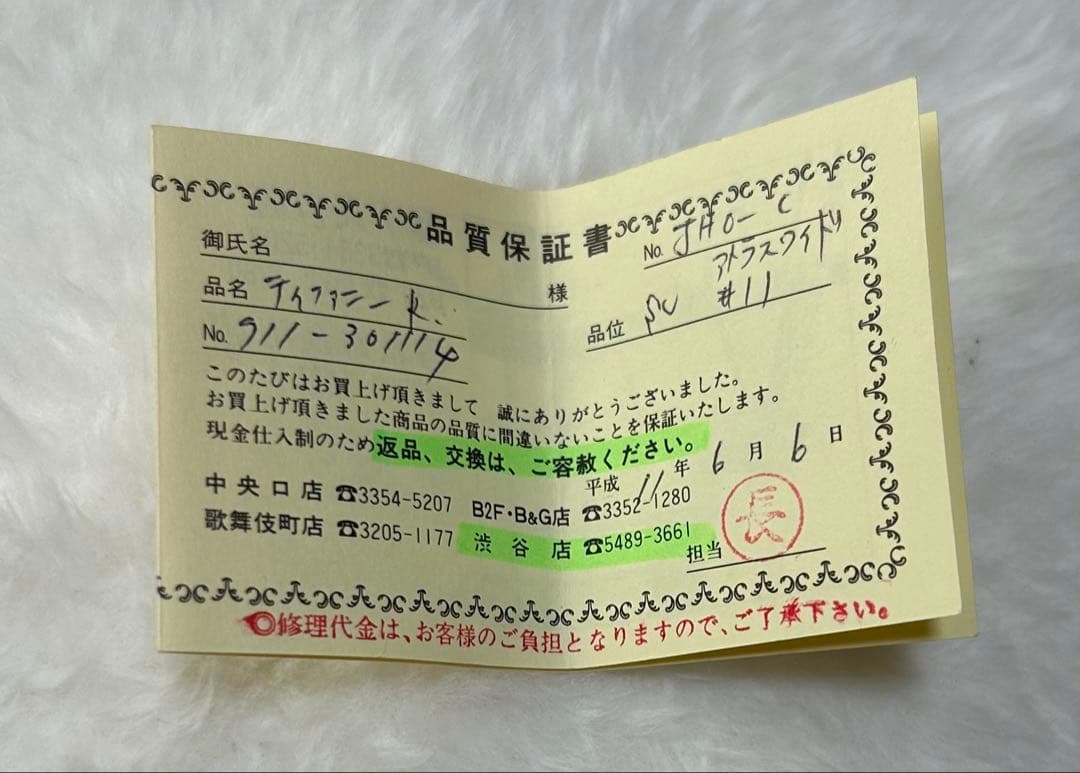 品質保証書
No. JHO-C
御氏名 様
アトラスワイド
品名 ティファニー R.
品位 SV #11
No. 911-301114
このたびはお買上げ頂きまして 誠にありがとうございました。
お買上げ頂きました商品の品質に間違いないことを保証いたします。
現金仕入制のため返品、交換は、ご容赦ください。
平成 11 年 6 月 6 日
中央口店 ☎3354-5207 B2F・B&G店 ☎3352-1280
歌舞伎町店 ☎3205-1177 渋谷店 ☎5489-3661
担当 長
◎修理代金は、お客様のご負担となりますので、ご了承下さい。